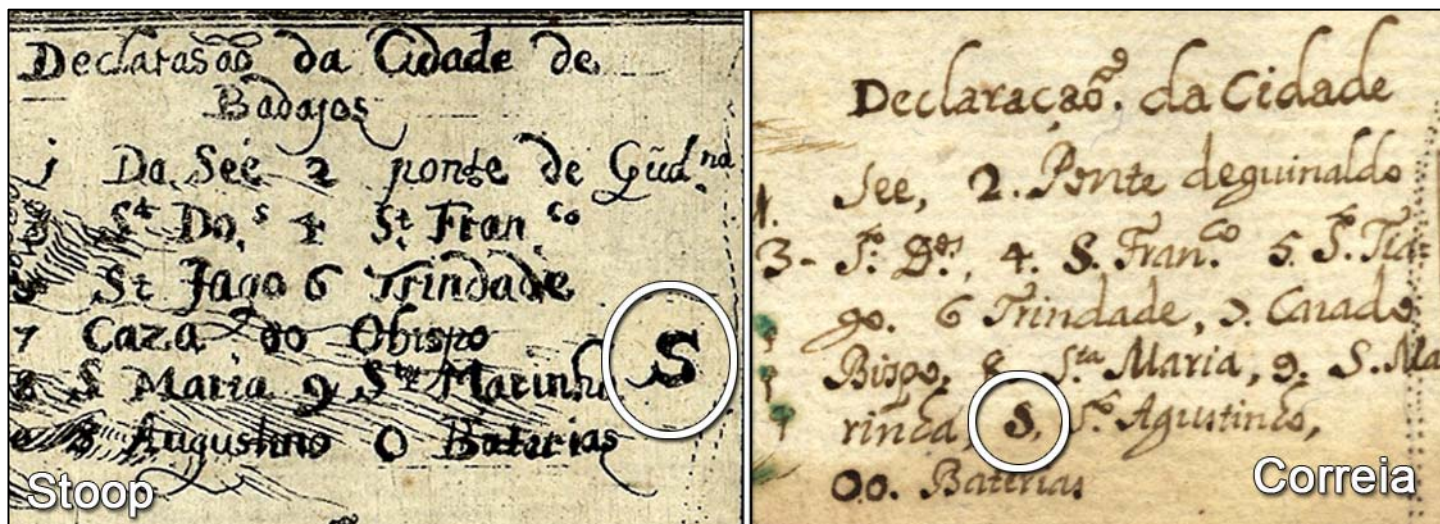 Declarasão da Cidade de
Badajos
1 Da Seé 2 ponte de Gűd.na
3 St Do.s 4 St. Fran.co
5 St Jago 6 Trindade
7 Caza do Obispo
8 S Maria 9 Sta Marinha
S
S Augustino O Baterias
Stoop
Declaraçaõ. da Cidade
1. See, 2. Ponte deguinaldo
3- S.to D.os, 4. S. Fran.co 5. S. Tia
go. 6 Trindade, 7. Caza do
Bispo, 8. S.ta Maria, 9. S. Ma
rinha, S. S.to Agustinho,
00. Baterias
Correia